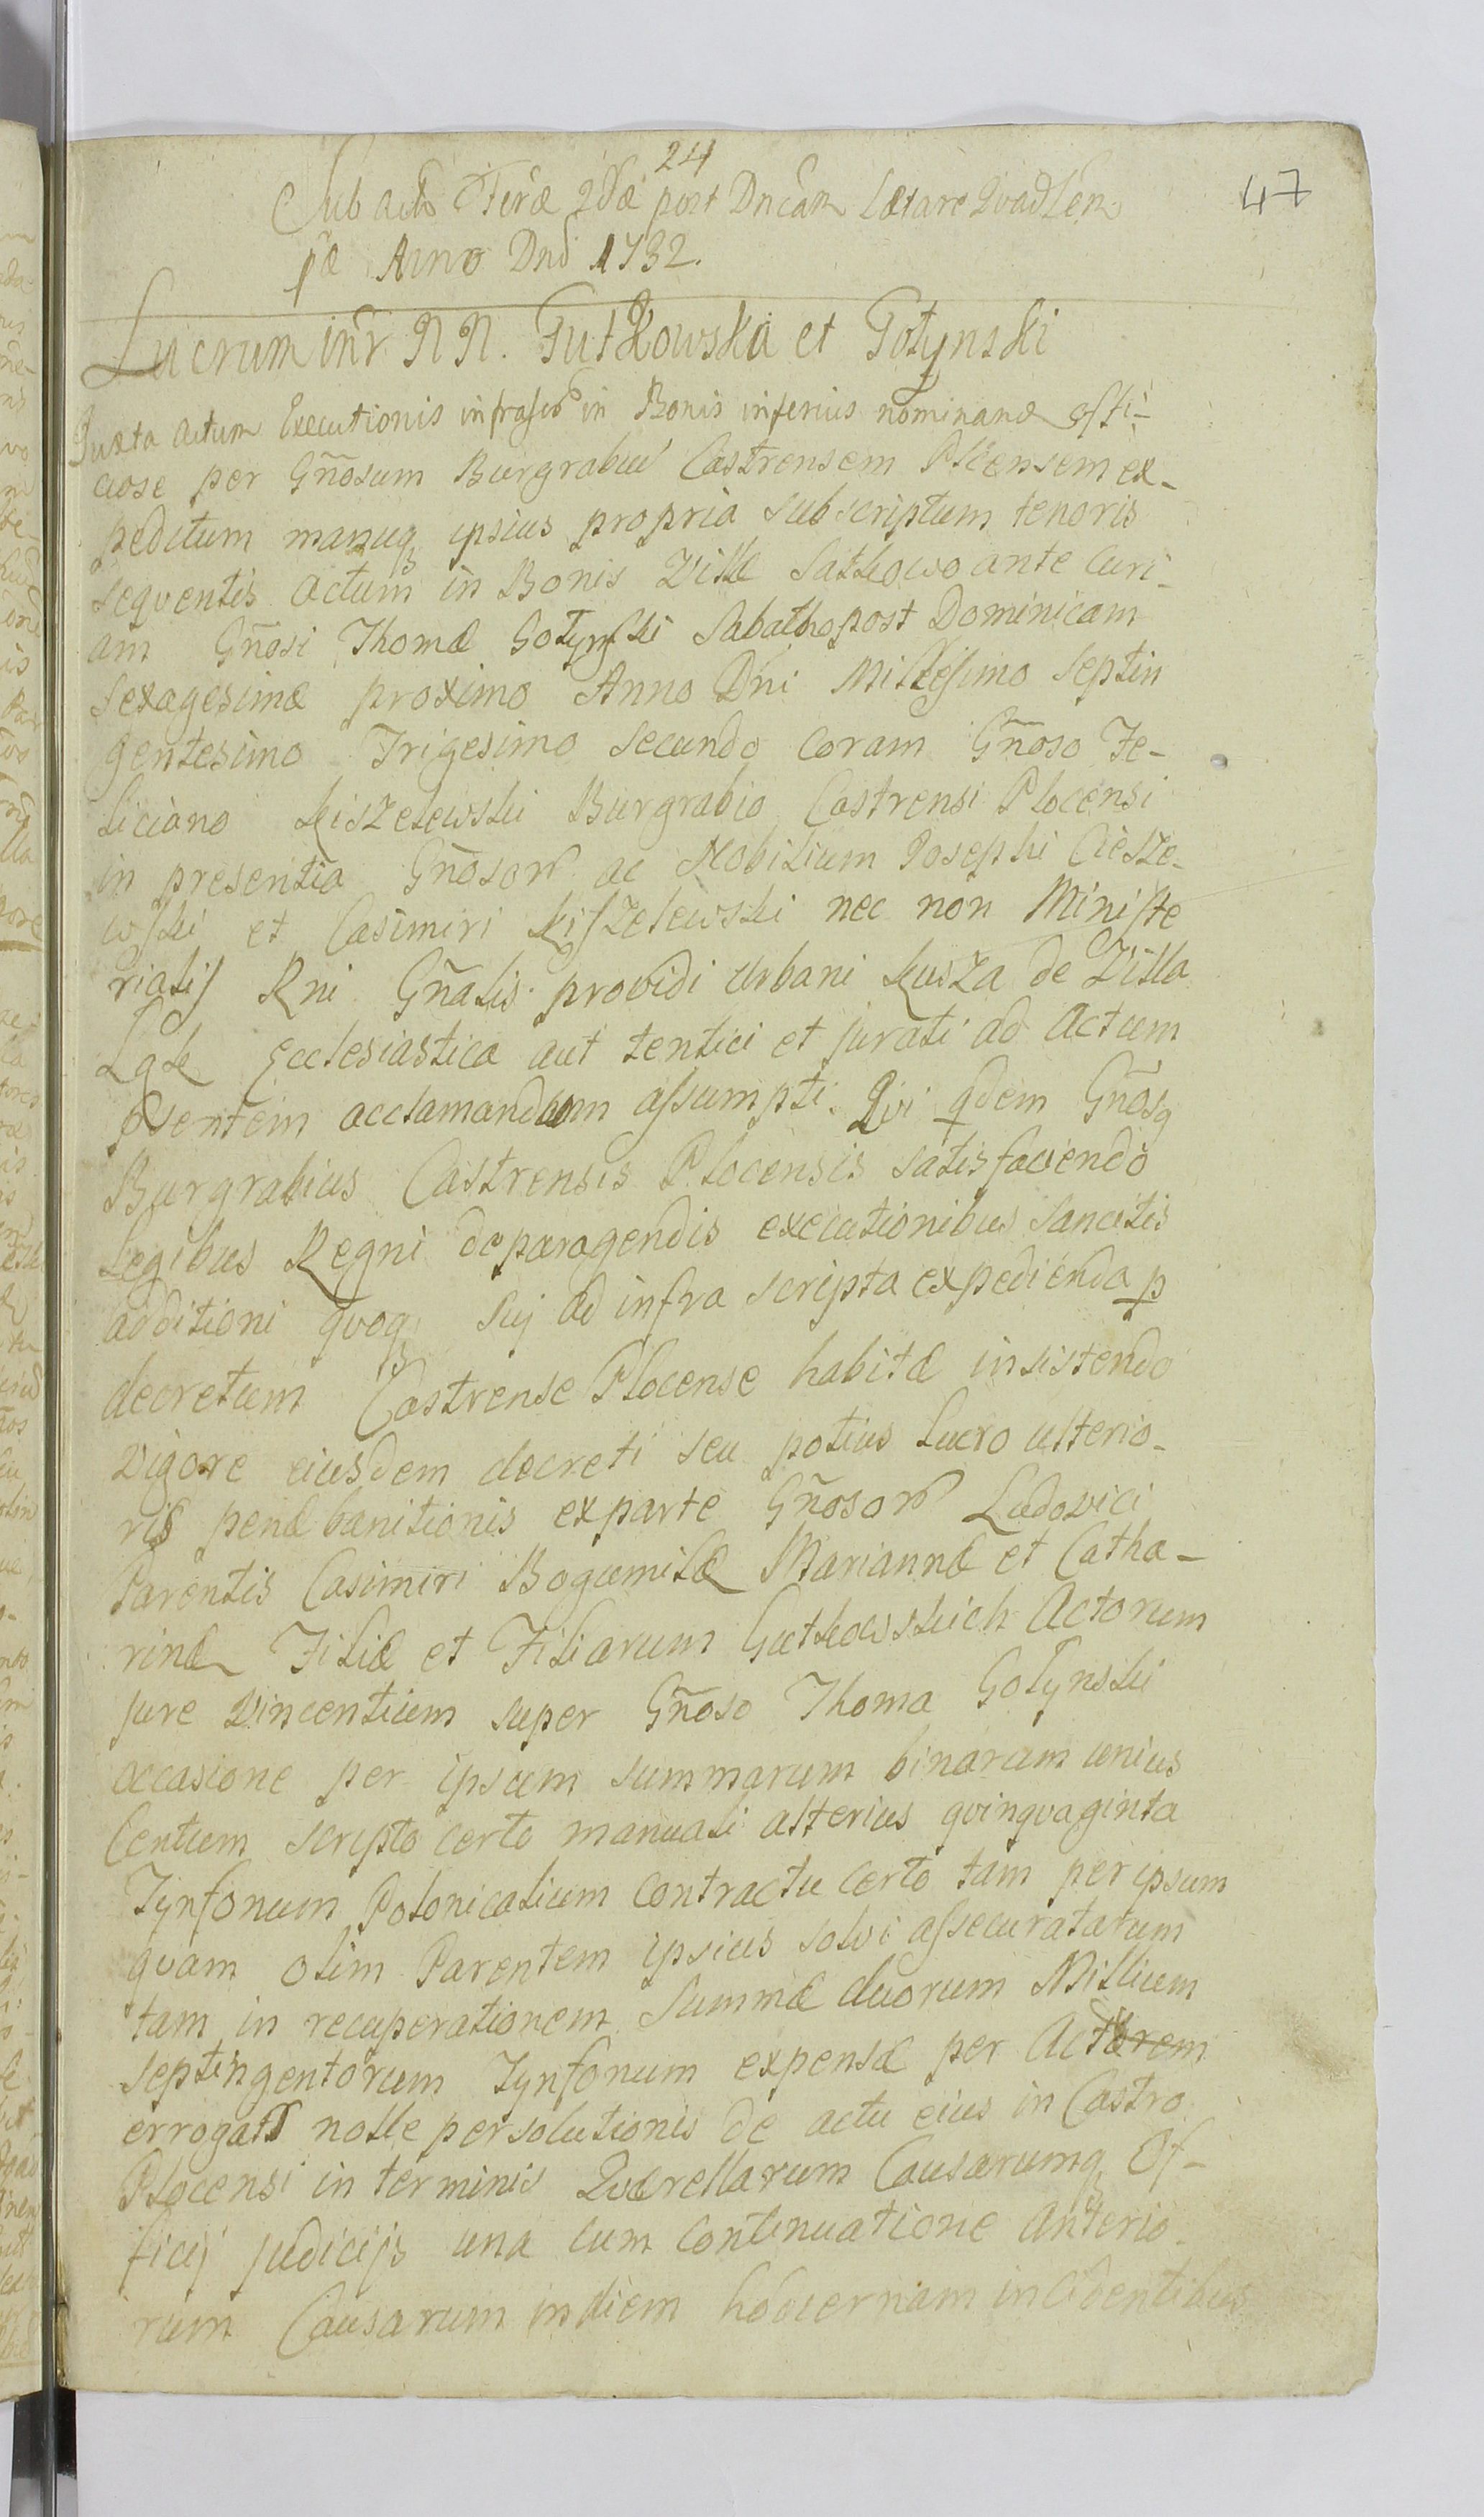 24
47
Sub actu Feriæ 2dæ post Dncam Lætare Quadlem
pæ Anno Dni 1732.
Lucrum intr NN. Gutkowski et Gotynski
Juxta actum Executionis infrascr in Bonis inferius nominand offi-
ciose per Gñosum Burgrabiu Castrensem Plcensem ex-
peditum manuq ipsius propria subscriptum tenoris
seqventis Actum in Bonis Villæ Satkowo ante Curi-
am Gñosi Thomæ Gotynski Sabatho post Dominicam
Sexagesimæ proximo Anno Dni Millesimo Septin
gentesimo Trigesimo secundo coram Gñoso Fe-
liciano Kiszelewski Burgrabio Castrensi Plocensi
in presentia Gñosor ac Nobilium Josephi Ciesze-
wski et Casimiri Kiszelewski nec non Ministe
rialis Rni Gñalis providi Urbani Kusza de Villa
Ecclesiastica aut tentici et jurati ad Actum
psentem acclamandum assumpti. Qvi qdem Gñosq
Burgrabius Castrensis Plocensis satisfaciendo
Legibus Regni de peragendis executionibus sancitis
additioni qvoq sui ad infra scripta expedienda p
decretum Castrense Plocense habitæ insistendo
vigore eiusdem decreti seu potius Lucro ulterio-
ris penæ banitionis exparte Gñosor Ludovici
Parentis Casimiri Bogumilæ Mariannæ et Catha-
rinæ Filiæ et Filiarum Gutkowskich Actorum
jure vincentium super Gñoso Thoma Gotynski
occasione per ipsum summarum binarum unius
Centum scripto certo manuali alterius qvinqvaginta
Tynfonum Polonicalium contractu certo tam per ipsum
qvam olim Parentem ipsius solvi assecuratatum
tam in recuperationem summæ duorum Millium
septingentorum Tynfonum expensæ per Actorem
errogat nolle persolutionis de actu eius in Castro
Plocensi in terminis Qværellarum Causarumq Of-
ficij judicijs una cum continuatione anterio-
rum Causarum in diem hodiernam incidentibus